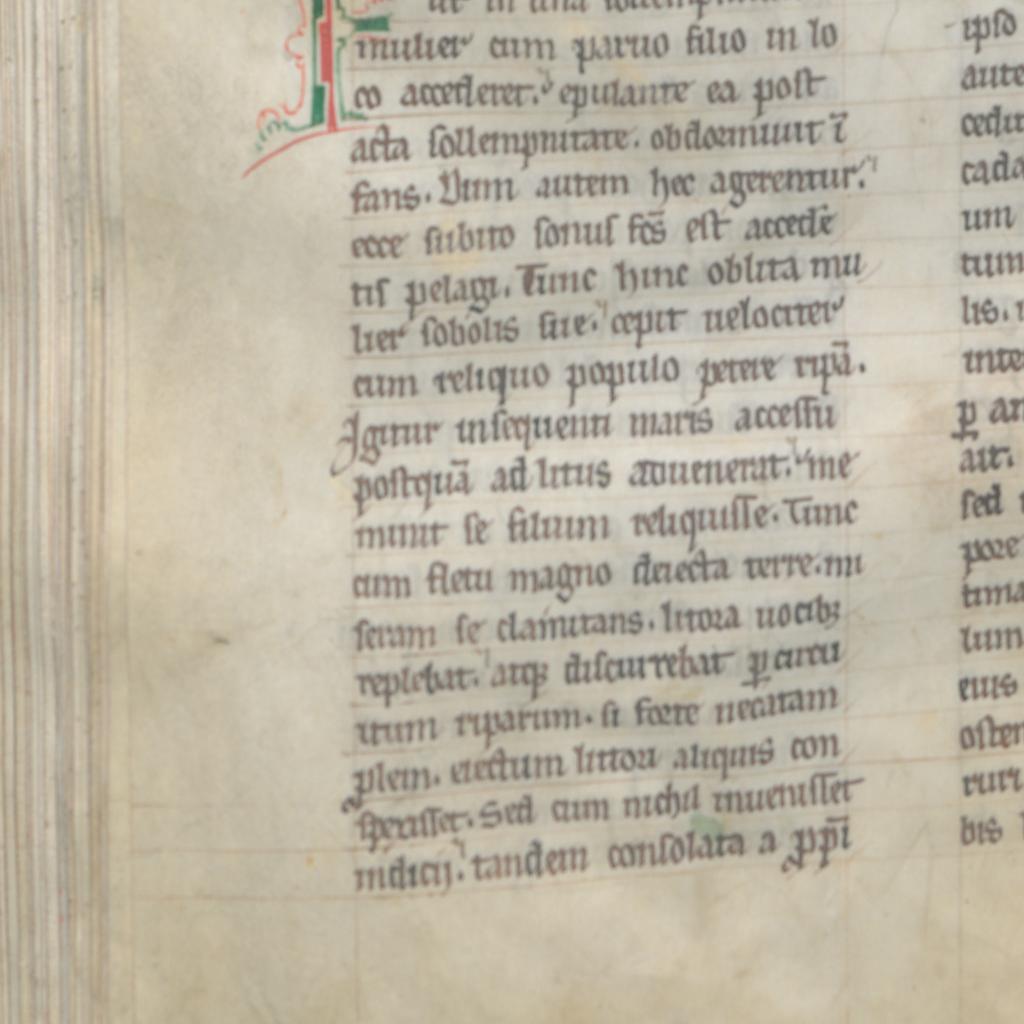 ut in una sollempnitate
mulier cum paruo filio in lo
co accessleret. epulante ea post
acta sollempnitate. obdormiuit ī
fans. Dum autem hec agerentur.
ecce subito sonus fcs̄ est accedē
tis pelagi. Tunc hinc oblita mu
lier sobolis sue. cepit uelociter
cum reliquo populo petere ripā.
Igitur insequenti maris accessu
postquā ad litus aduenerat. me
minit se filium reliquisse. Tunc
cum fletu magno deiecta terre. mi
seram se clamitans. litora uocibꝫ
replebat. atqꝫ discurrebat ꝑ circu
itum riparum. si forte necatam
ꝓlem. eiectum littori aliquis con
sperisset. Sed cum nichil inuenisset
indicij. tandem consolata a ꝓpī
ipso
aute
cedit
cada
um
tum
lis.
inte
ꝑ an
ait.
sed
pore
tima
lum
eius
osten
ruri
bis